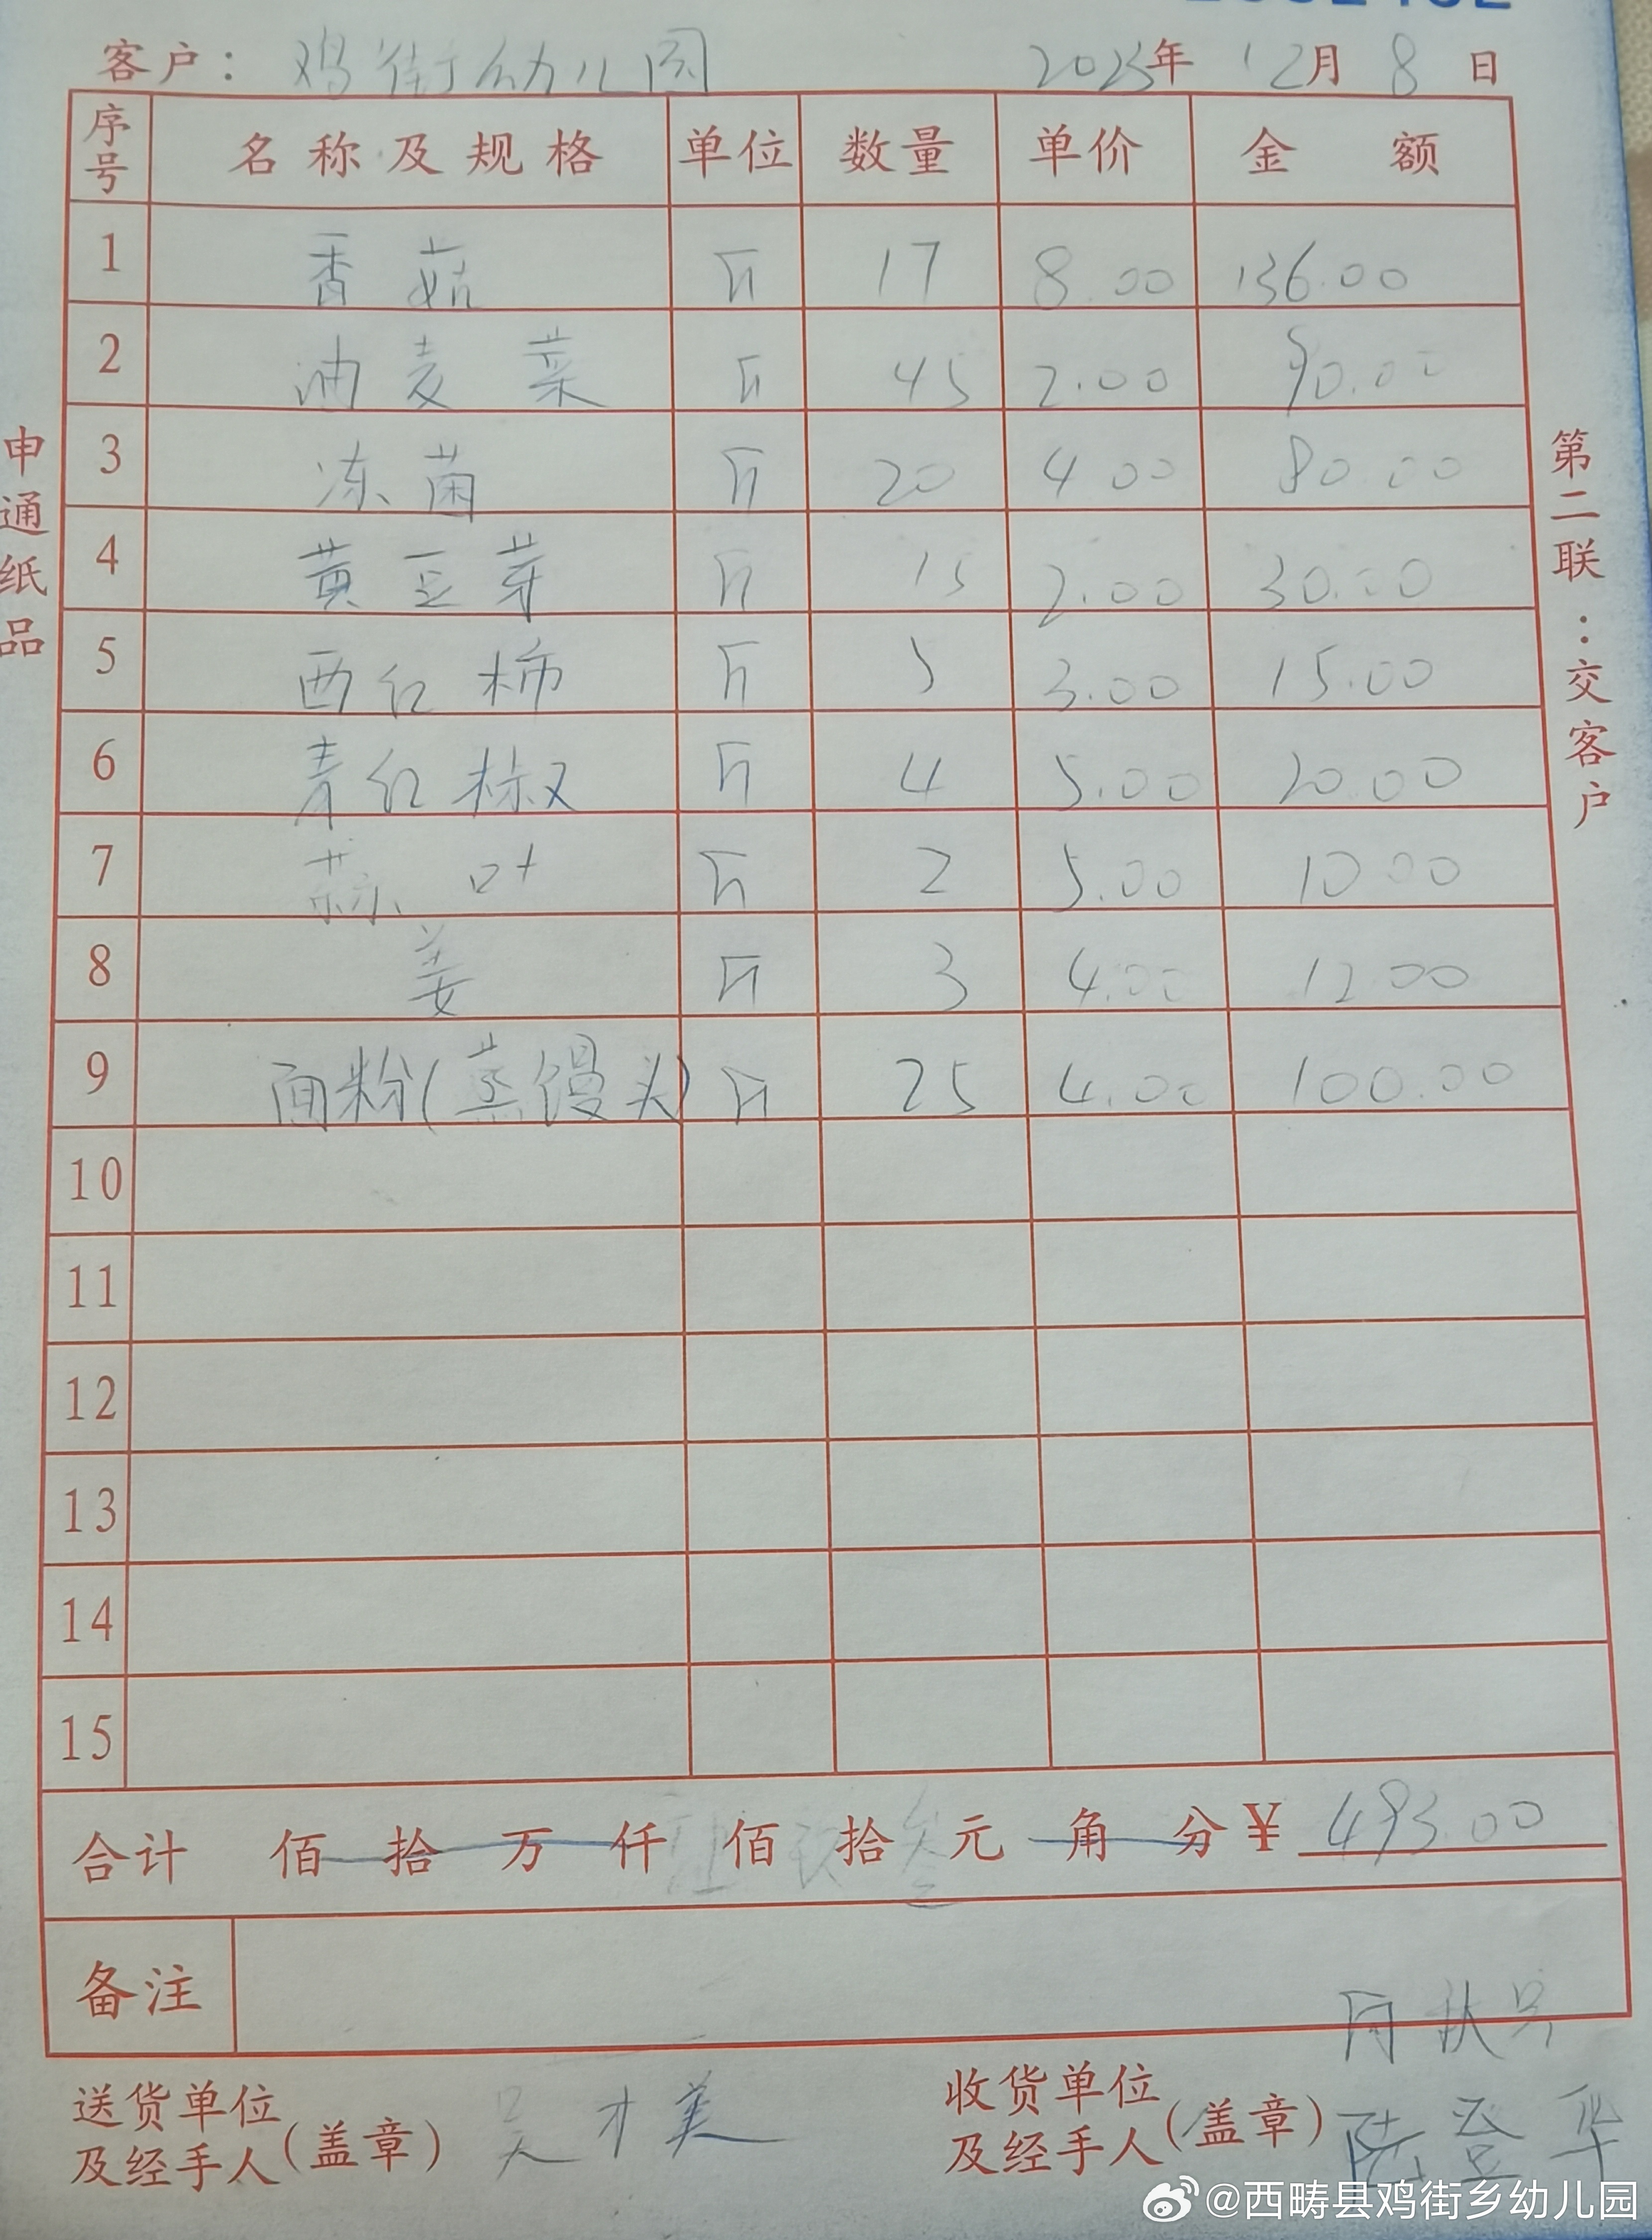 客户：鸡街幼儿园 2025年12月8日
序号 名称及规格 单位 数量 单价 金额
1 香菇 斤 17 8.00 136.00
2 油麦菜 斤 45 2.00 90.00
3 冻菌 斤 20 4.00 80.00
4 黄豆芽 斤 15 2.00 30.00
5 西红柿 斤 5 3.00 15.00
6 青红椒 斤 4 5.00 20.00
7 蒜叶 斤 2 5.00 10.00
8 姜 斤 3 4.00 12.00
9 面粉(蒸馒头) 斤 25 4.00 100.00
10
11
12
13
14
15
合计 佰 拾 万 仟 肆佰 玖拾 叁元 角 分 ¥ 493.00
备注
送货单位及经手人(盖章) 吴才美
收货单位及经手人(盖章) 陆登华
申通纸品
第二联：交客户
@西畴县鸡街乡幼儿园